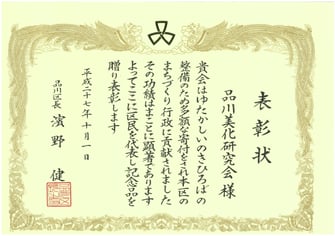 表彰状
品川美化研究会様
貴会はゆたかしいのきひろばの
整備のため多額な寄付をされ本区の
まちづくり行政に貢献されました
その功績はまことに顕著であります
よってここに区民を代表し記念品を
贈り表彰します
平成二十七年十月一日
品川区長 濱野 健